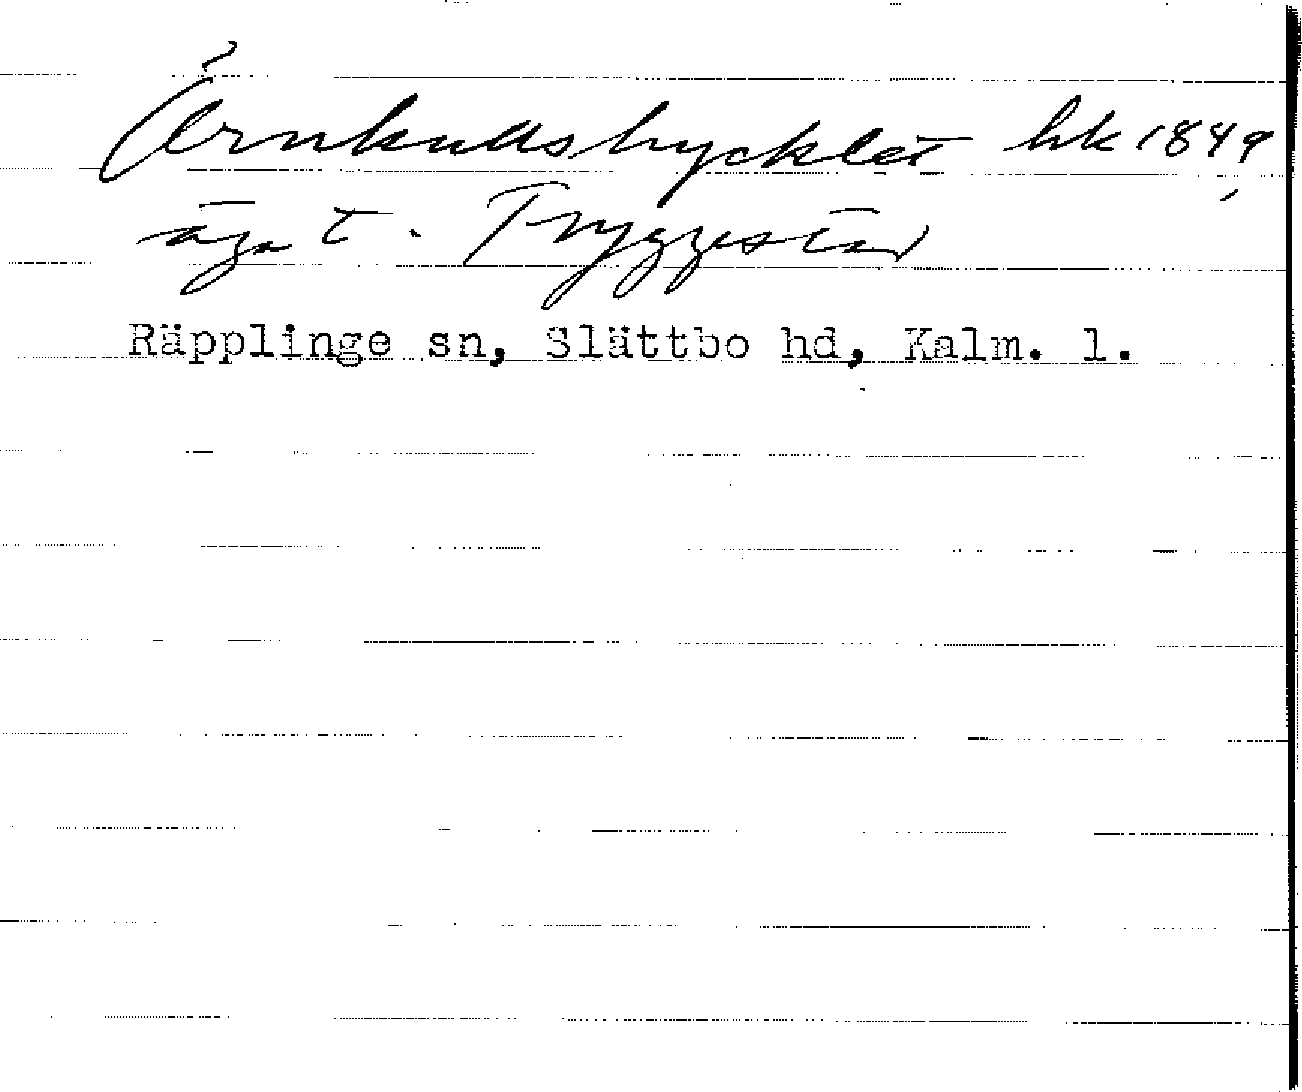 Årnkullshycklet hk 1849,
äga t. Tryggestad
Räpplinge sn, Slättbo hd, Kalm. l.